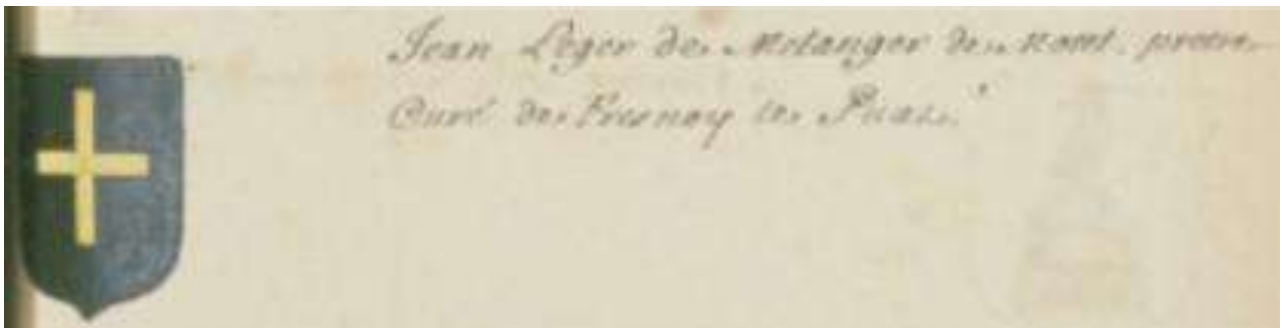 Jean Leger de Melanger de mont, pretre
Curé de Fresnay le